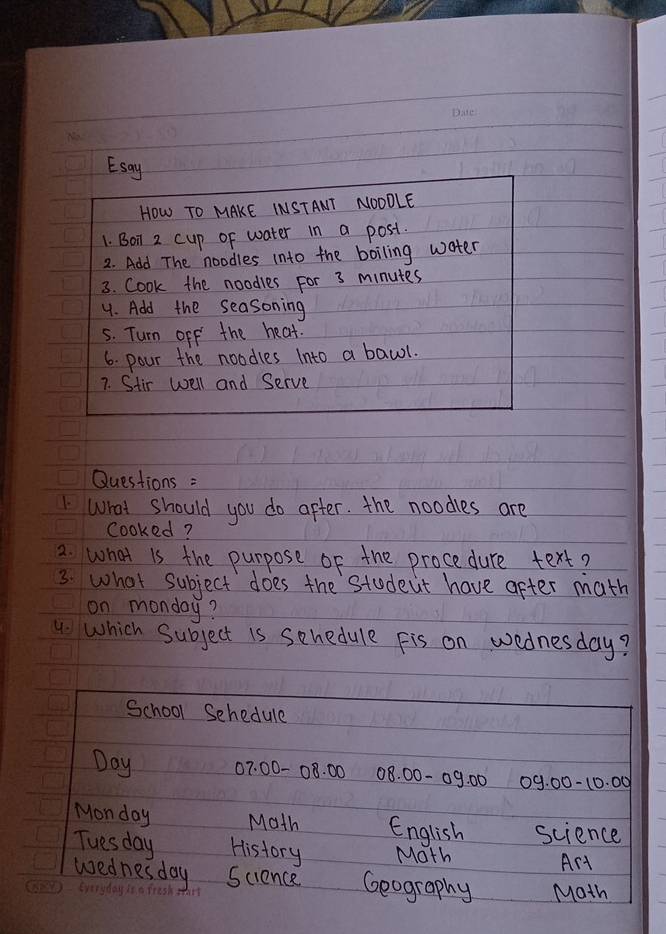 No.
Date:
Esay
HOW TO MAKE INSTANT NOODLE
1. Boil 2 cup of water in a post.
2. Add The noodles into the boiling water
3. Cook the noodles for 3 minutes
4. Add the seasoning
5. Turn off the heat.
6. pour the noodles into a bawl.
7. Stir well and Serve
Questions =
1. What should you do after. the noodles are
cooked?
2. What is the purpose of the procedure text?
3. What subject does the student have after math
on monday?
4. Which Subject is Sehedule fis on wednesday?
School Sehedule
Day 07.00-08.00 08.00-09.00 09.00-10.00
Monday Math English Science
Tuesday History Math Art
Wednesday Science Geography Math
Everyday is a fresh start